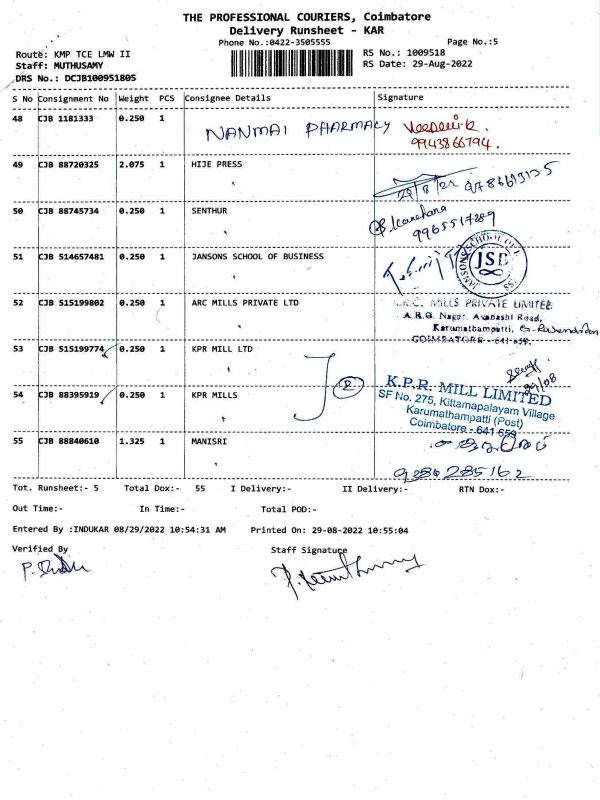 THE PROFESSIONAL COURIERS, Coimbatore
Delivery Runsheet - KAR
Phone No.:0422-3505555 Page No.:5
Route: KMP TCE LMW II RS No.: 1009518
Staff: MUTHUSAMY RS Date: 29-Aug-2022
DRS No.: DCJB100951805
S No Consignment No Weight PCS Consignee Details Signature
48 CJB 1181333 0.250 1 NANMAI PHARMACY
9943866794.
49 CJB 88720325 2.075 1 HIJE PRESS
50 CJB 88745734 0.250 1 SENTHUR
9965517289
51 CJB 514657481 0.250 1 JANSONS SCHOOL OF BUSINESS
JSB
52 CJB 515199802 0.250 1 ARC MILLS PRIVATE LTD
MILLS PRIVATE LIMITED
A.R.C. Nagar, Avanashi Road,
Karumathampatti,
COIMBATORE - 641 659.
53 CJB 515199774 0.250 1 KPR MILL LTD
29/08
54 CJB 88395919 0.250 1 KPR MILLS
K.P.R. MILL LIMITED
SF No. 275, Kittamapalayam Village
Karumathampatti (Post)
Coimbatore - 641 659
55 CJB 88840610 1.325 1 MANISRI
Tot. Runsheet:- 5 Total Dox:- 55 I Delivery:- II Delivery:- RTN Dox:-
Out Time:- In Time:- Total POD:-
Entered By :INDUKAR 08/29/2022 10:54:31 AM Printed On: 29-08-2022 10:55:04
Verified By Staff Signature